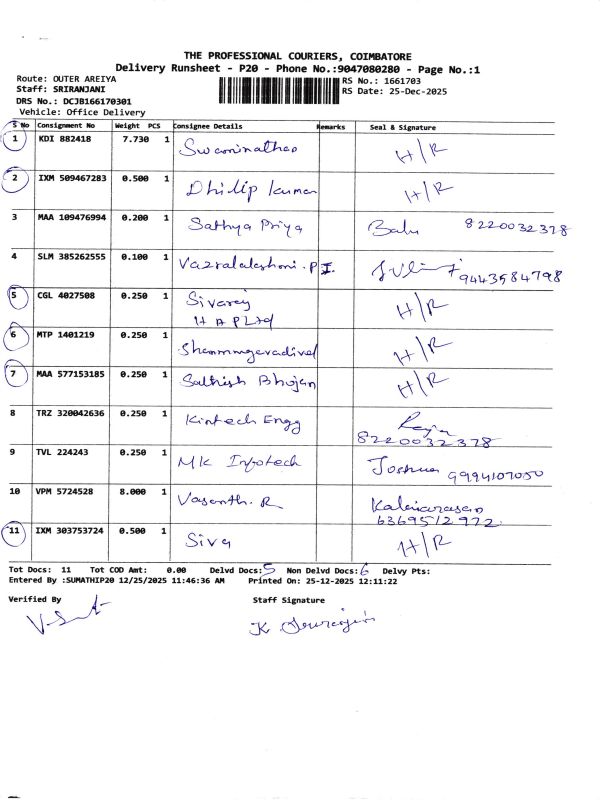 THE PROFESSIONAL COURIERS, COIMBATORE
Delivery Runsheet - P20 - Phone No.:9047080280 - Page No.:1
Route: OUTER AREIYA
Staff: SRIRANJANI
DRS No.: DCJB166170301
Vehicle: Office Delivery
RS No.: 1661703
RS Date: 25-Dec-2025
S No Consignment No Weight PCS Consignee Details Remarks Seal & Signature
1 KDI 882418 7.730 1 Swaminathan H/R
2 IXM 509467283 0.500 1 Dhilip kumar H/R
3 MAA 109476994 0.200 1 Sathya Priya Balu 8220032378
4 SLM 385262555 0.100 1 Vazralalakshmi. P I. 9443584798
5 CGL 4027508 0.250 1 Sivaraj H/R
H A P Ltd
6 MTP 1401219 0.250 1 Shanmugavadivel H/R
7 MAA 577153185 0.250 1 Sathish Bhojan H/R
8 TRZ 320042636 0.250 1 Kintech Engg
8220032378
9 TVL 224243 0.250 1 MK Infotech Joshua 9994107050
10 VPM 5724528 8.000 1 Vasanth. R Kalaiarasan
6369512972
11 IXM 303753724 0.500 1 Siva H/R
Tot Docs: 11 Tot COD Amt: 0.00 Delvd Docs:5 Non Delvd Docs:6 Delvy Pts:
Entered By :SUMATHIP20 12/25/2025 11:46:36 AM Printed On: 25-12-2025 12:11:22
Verified By Staff Signature